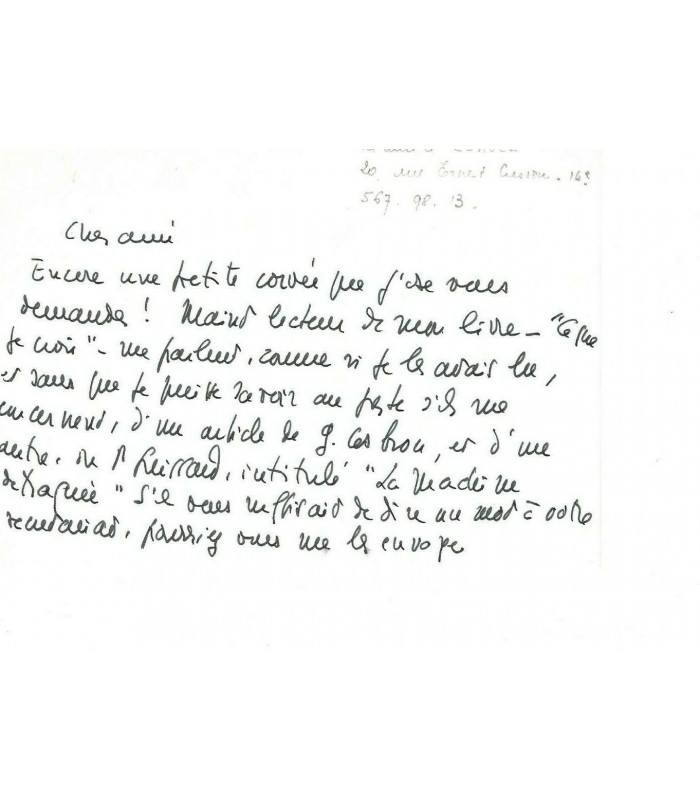 20, rue Ernest Cresson. 14e
567. 98. 13.
Cher ami
Encore une petite corvée que j'ose vous
demander ! Maint lecteur de mon livre – "Ce que
je crois" – me parlent, comme si je les avais lus,
et sans que je puisse savoir au juste s'ils me
concernent, d'un article de J. et d'un
autre, de intitulé "La Machine
détraquée" S'il vous suffisait de dire un mot à votre
secrétariat, pourriez vous me les envoyer